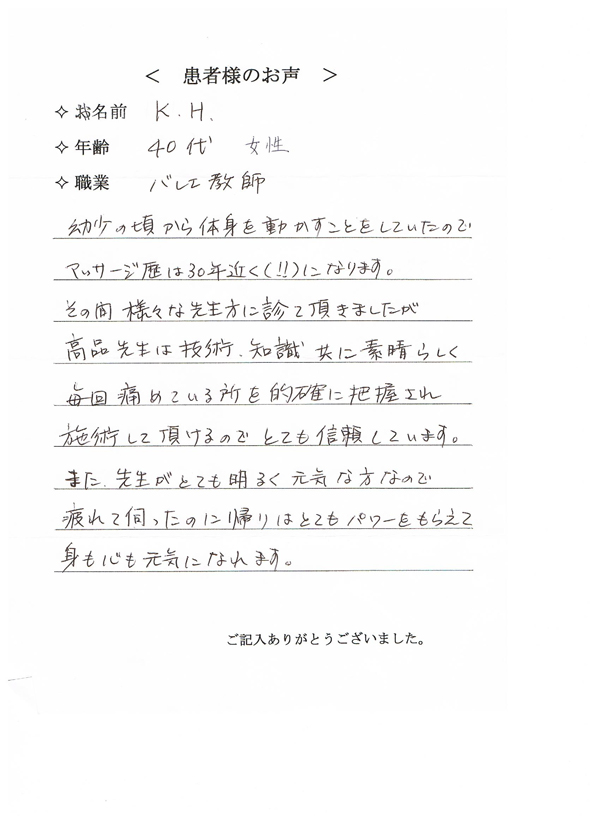 ＜　患者様のお声　＞
✧ お名前　K.H.
✧ 年齢　40代　女性
✧ 職業　バレエ教師
幼少の頃から体身を動かすことをしていたので
マッサージ歴は30年近く(!!)になります。
その間 様々な先生方に診て頂きましたが
高品先生は技術、知識 共に素晴らしく
毎回 痛めている所を的確に把握され
施術して頂けるので とても信頼しています。
また、先生がとても明るく 元気な方なので
疲れて伺ったのに帰りはとてもパワーをもらえて
身も心も元気になれます。
ご記入ありがとうございました。